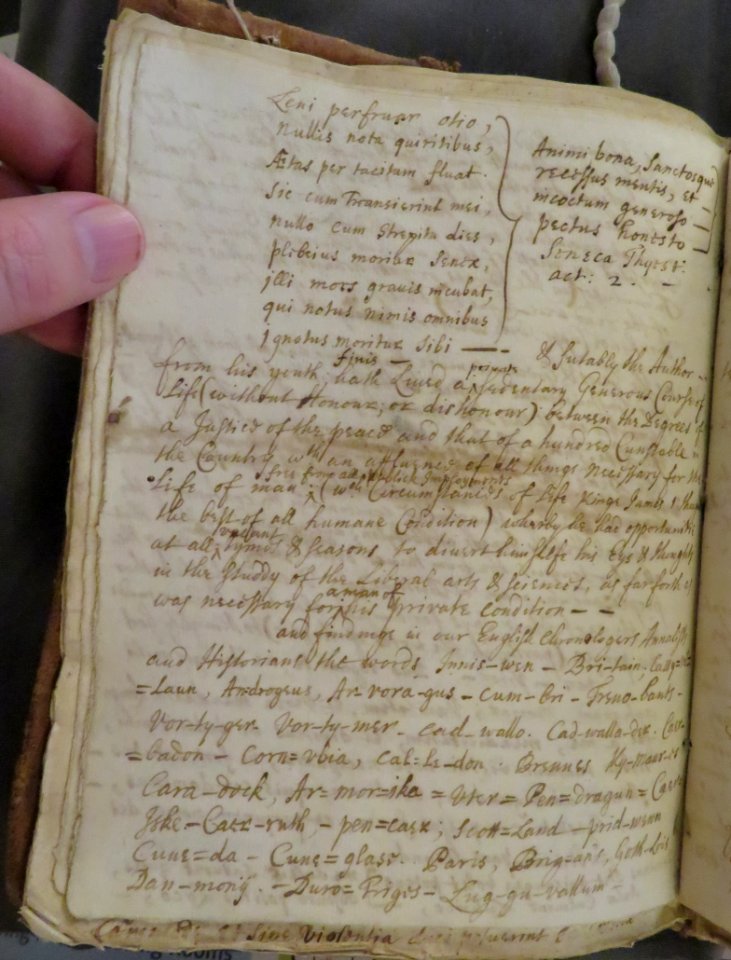 Leni perfruar otio,
Nullis nota quiritibus,
Ætas per tacitum fluat.
Sic cum Transierint mei,
nullo cum strepitu dies,
plebeius moriar Senex,
illi mors gravis incubat,
qui notus nimis omnibus
ignotus moritur sibi —
finis —
Animi bona, Sanctosque
recessus mentis, et —
incoctum generoso —
pectus honesto —
Seneca Thyest:
act: 2. —
& sutably the Author —
from his youth, hath Lived a private sedentary Generous Course of
Life (without Honour, or dishonour) between the Degrees of
a Justice of the peace and that of a hundred Cunstable in
the Country wth an affluence of all things necessary for the
Life of man; free from all publick Imployments (wch Circumstances of Life Kinge James 1 thought
the best of all humane Condition) wherby he had opportunitie
at all vacant tymes & seasons to divert himselfe his Eys & thoughts
in the studdy of the Liberal arts & sciences, as far forth as
was necessary for a man of his private condition — —
and findinge in our English Chronologers Annalists
and Historians the words Innis-wen — Bri-tain,
=Laun, Androgeus, Ar vora-gus - Cum-bri - Treno-bants -
Vor-ty-ger Vor-ty-mer - Cad-wallo. Cad-walla-der. Caer
=badon - Corn=vbia, Cal=le-don. Brennes Ky-maur-
Cara-dock, Ar=mor=ika = Uter= Pen=dragun = Caer=
Iske - Caer-ruth, - pen=caer; Scott=Land - prid-wenn
Cune=da - Cune=glass. Paris, Brig=ans, Goth-Lois
Dan-monij. - Duro=Triges - Lug-gu-vallum -
sive Violentia